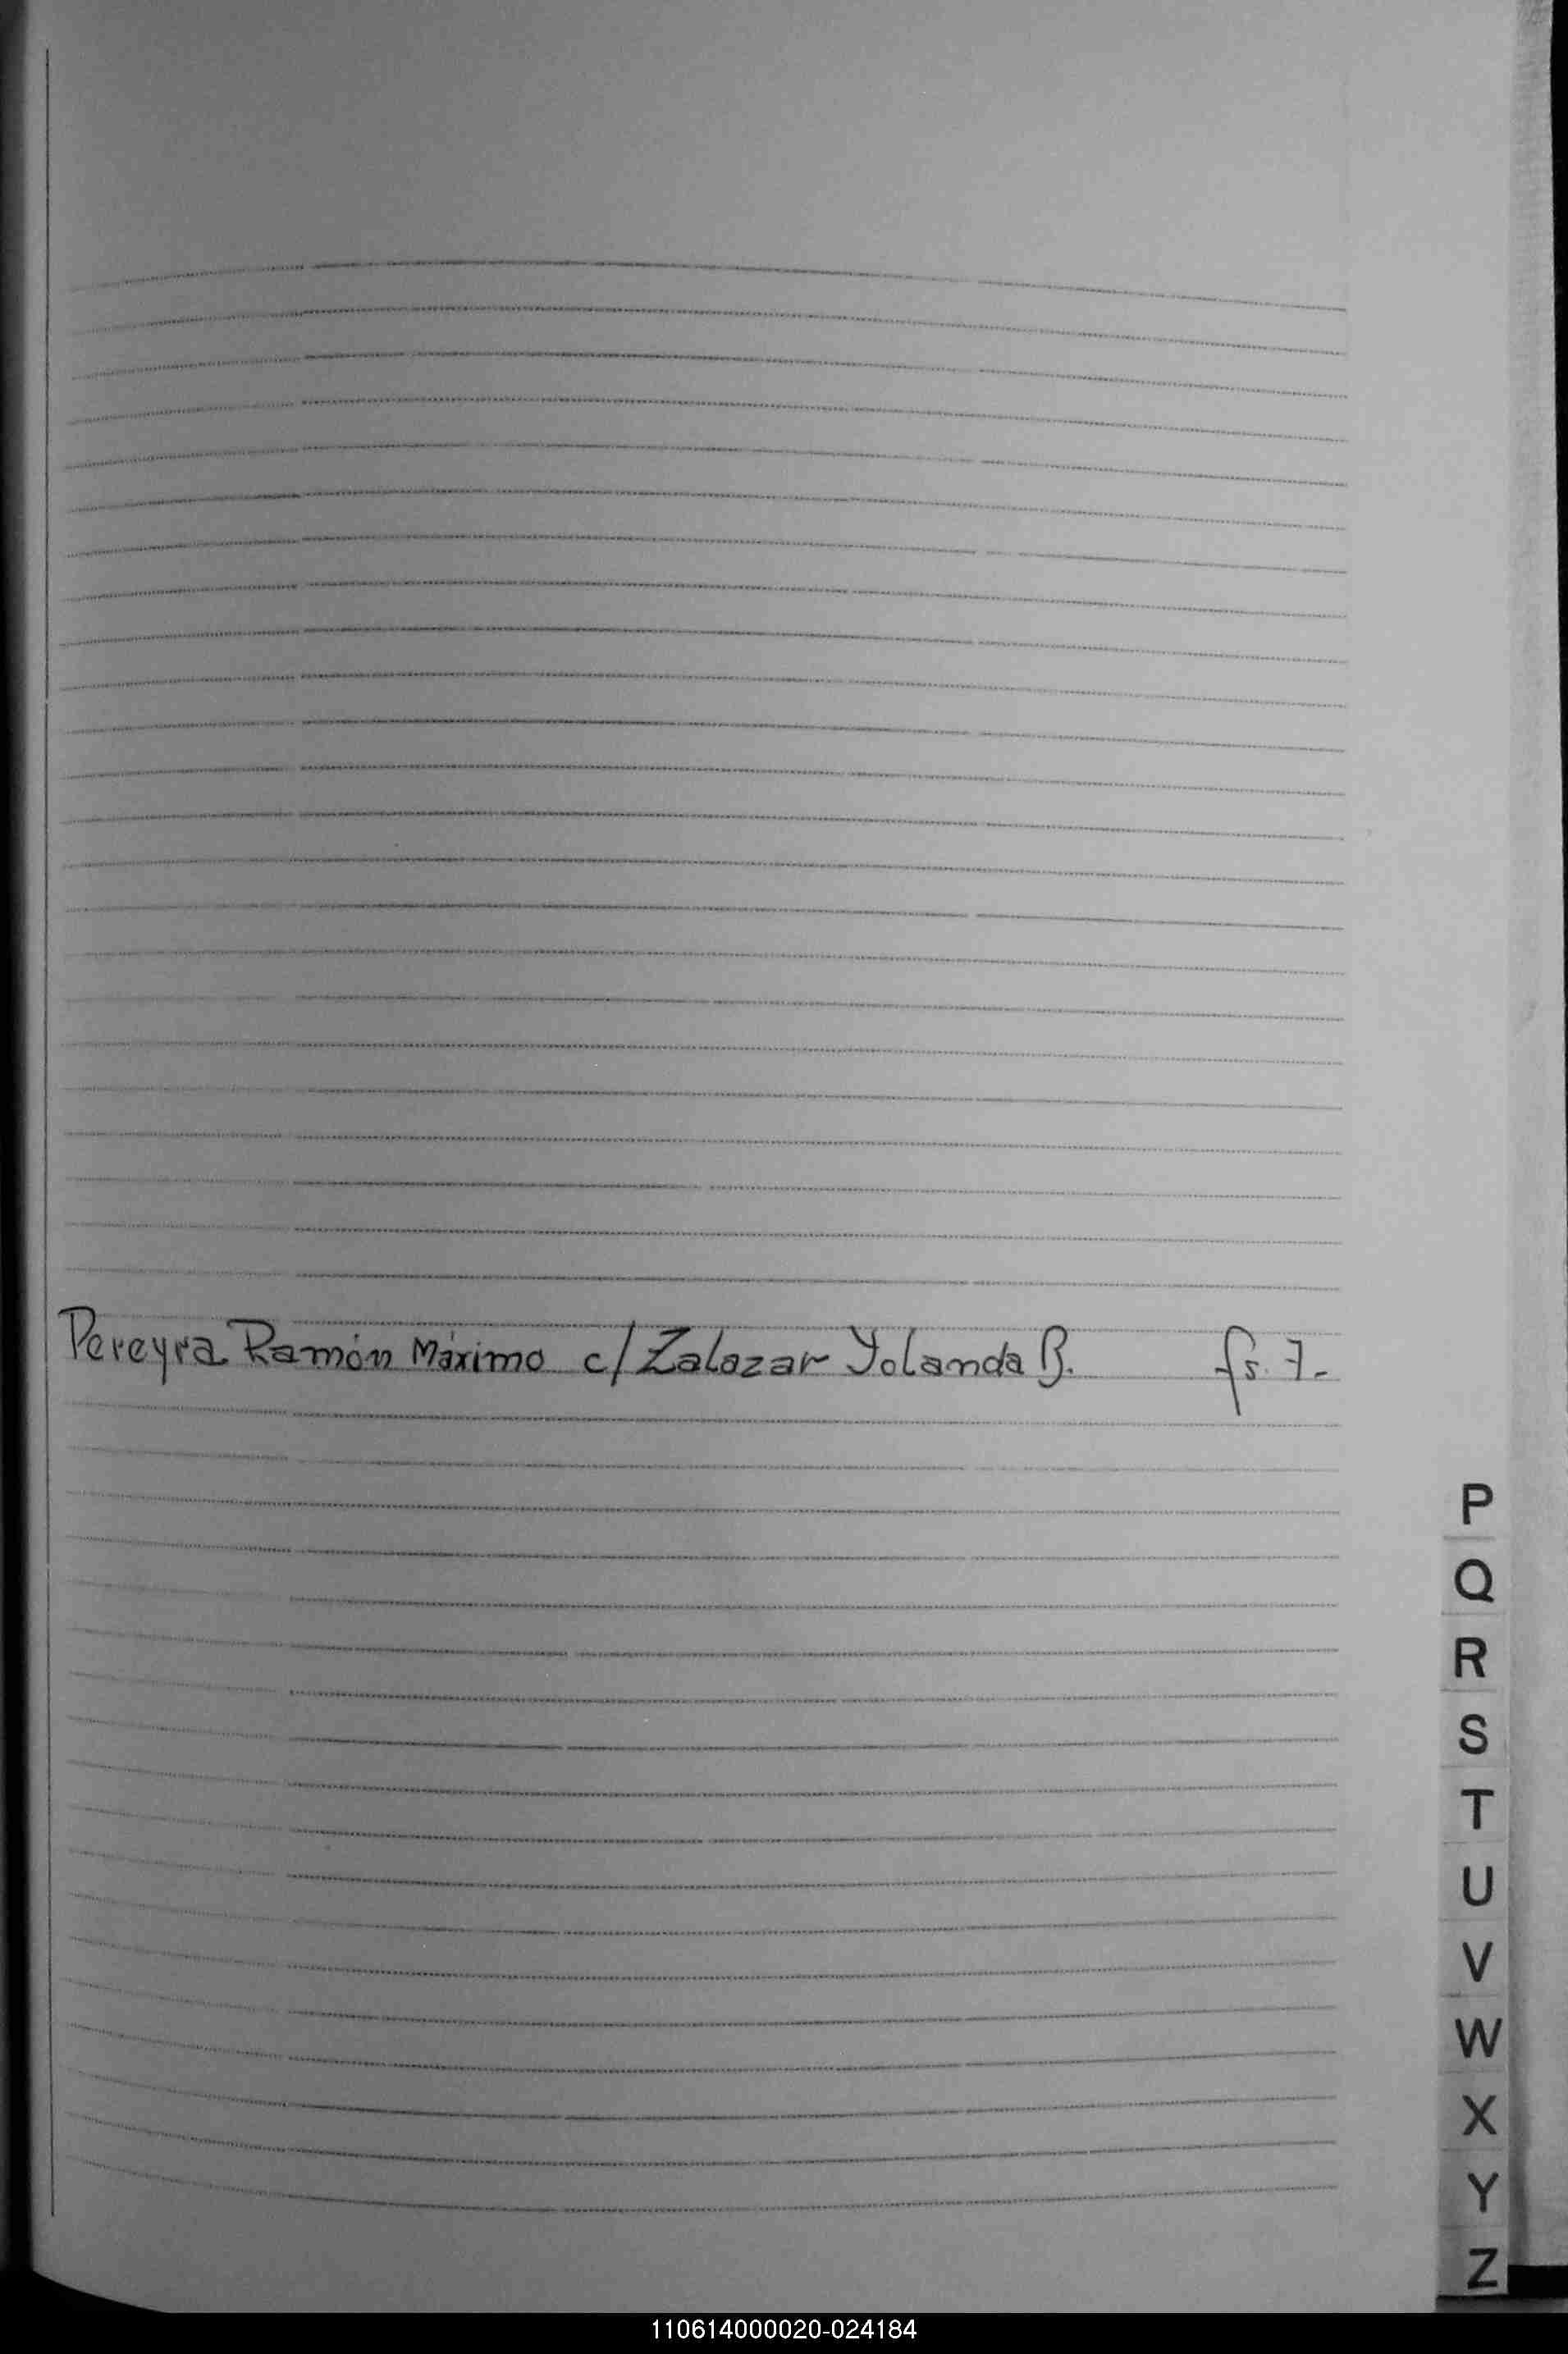 Pereyra Ramón Máximo c/ Zalazar Yolanda B. fs. 7.-
P
Q
R
S
T
U
V
W
X
Y
Z
110614000020-024184